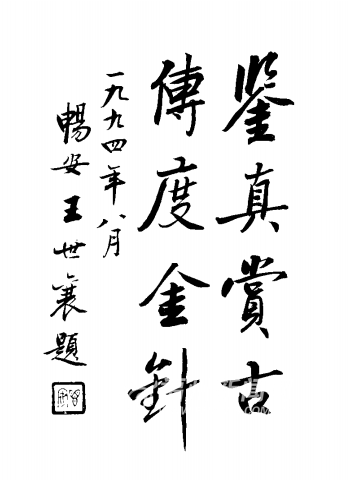 鑒真賞古
傳度金針
一九九四年八月
暢安王世襄題